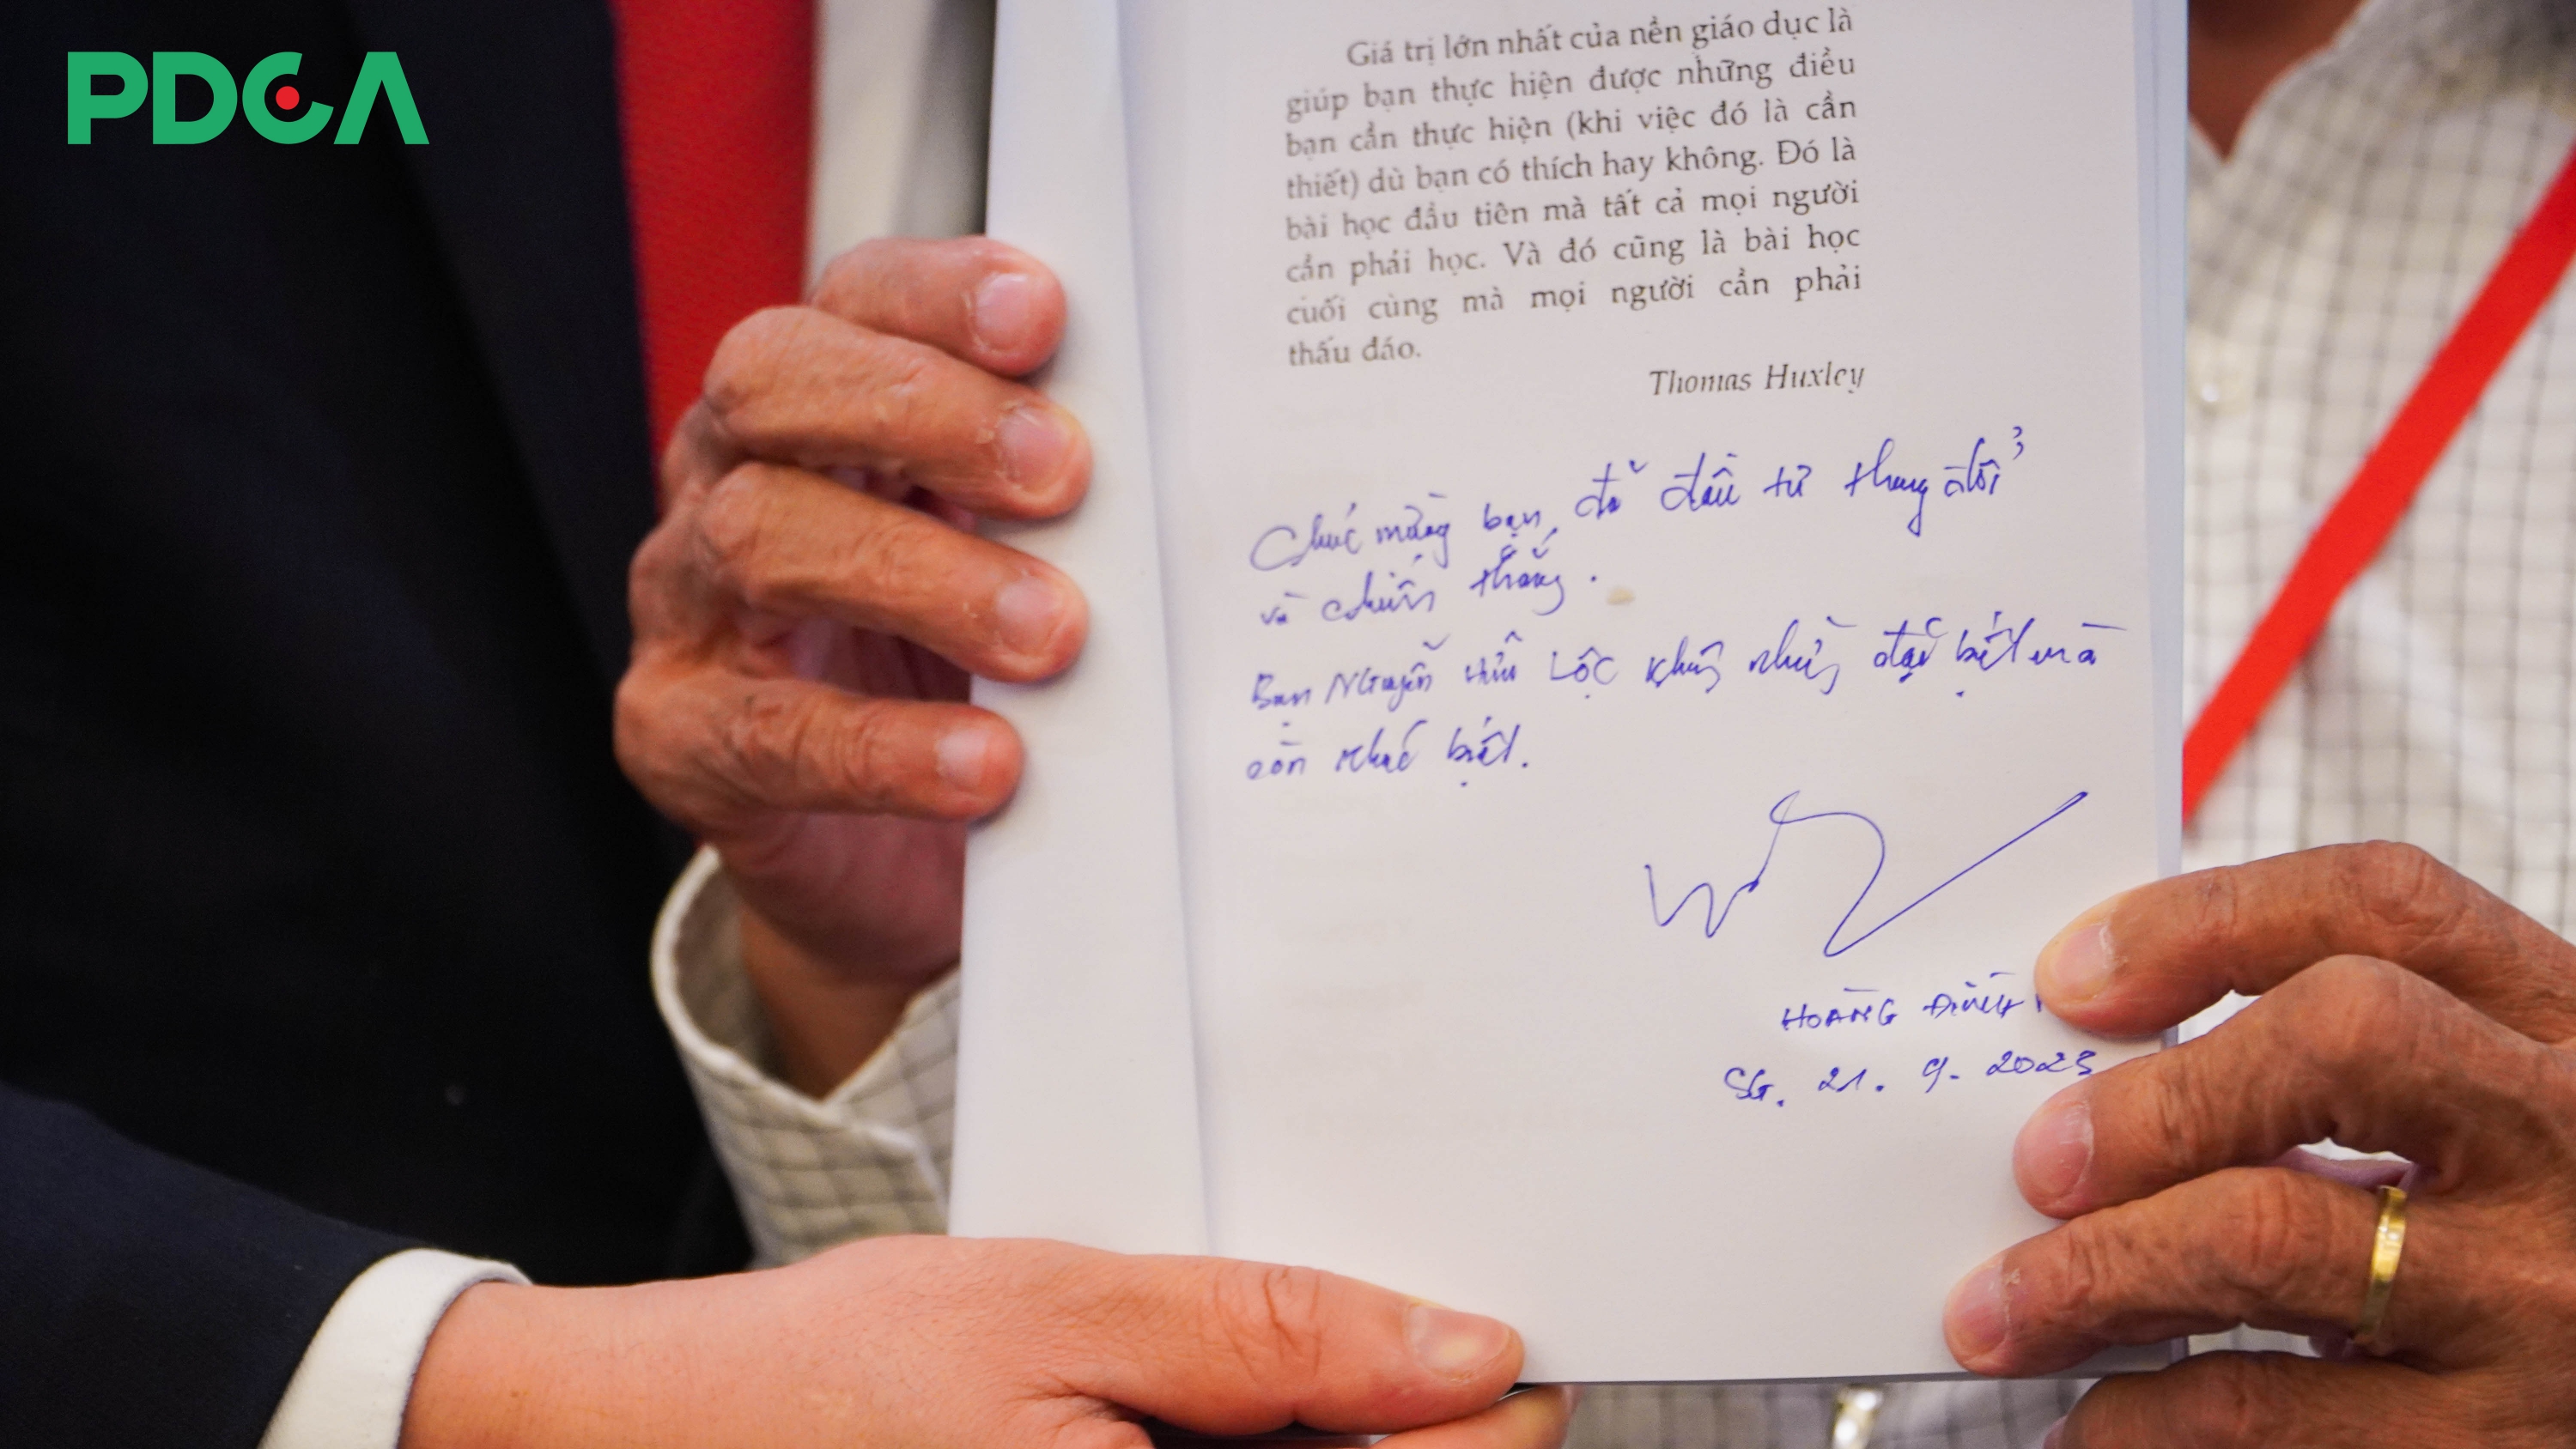 PDCA
Giá trị lớn nhất của nền giáo dục là
giúp bạn thực hiện được những điều
bạn cần thực hiện (khi việc đó là cần
thiết) dù bạn có thích hay không. Đó là
bài học đầu tiên mà tất cả mọi người
cần phải học. Và đó cũng là bài học
cuối cùng mà mọi người cần phải
thấu đáo.
Thomas Huxley
Chúc mừng bạn, đã đầu tư thay đổi
và chiến thắng.
Bạn Nguyễn Hữu Lộc không những đặc biệt mà
còn khác biệt.
HOÀNG ĐÌNH
SG. 21. 9. 2023